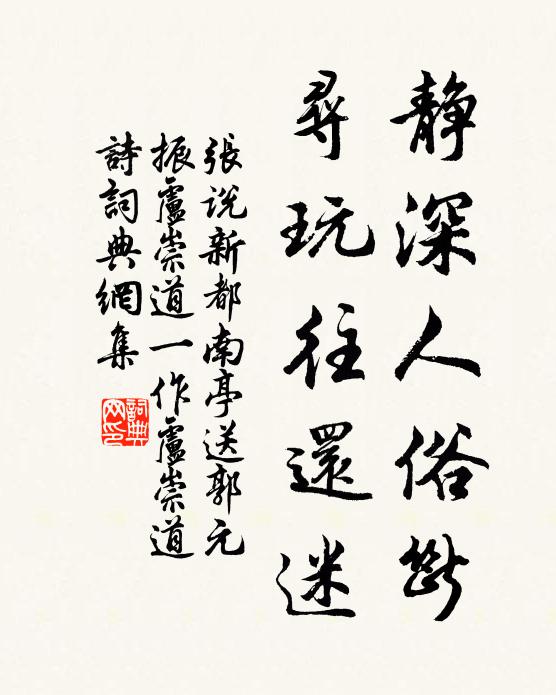 静深人俗斷
尋玩往還迷
張说新都南亭送郭元
振盧崇道一作盧崇道
詩詞典網集
詞典
网印